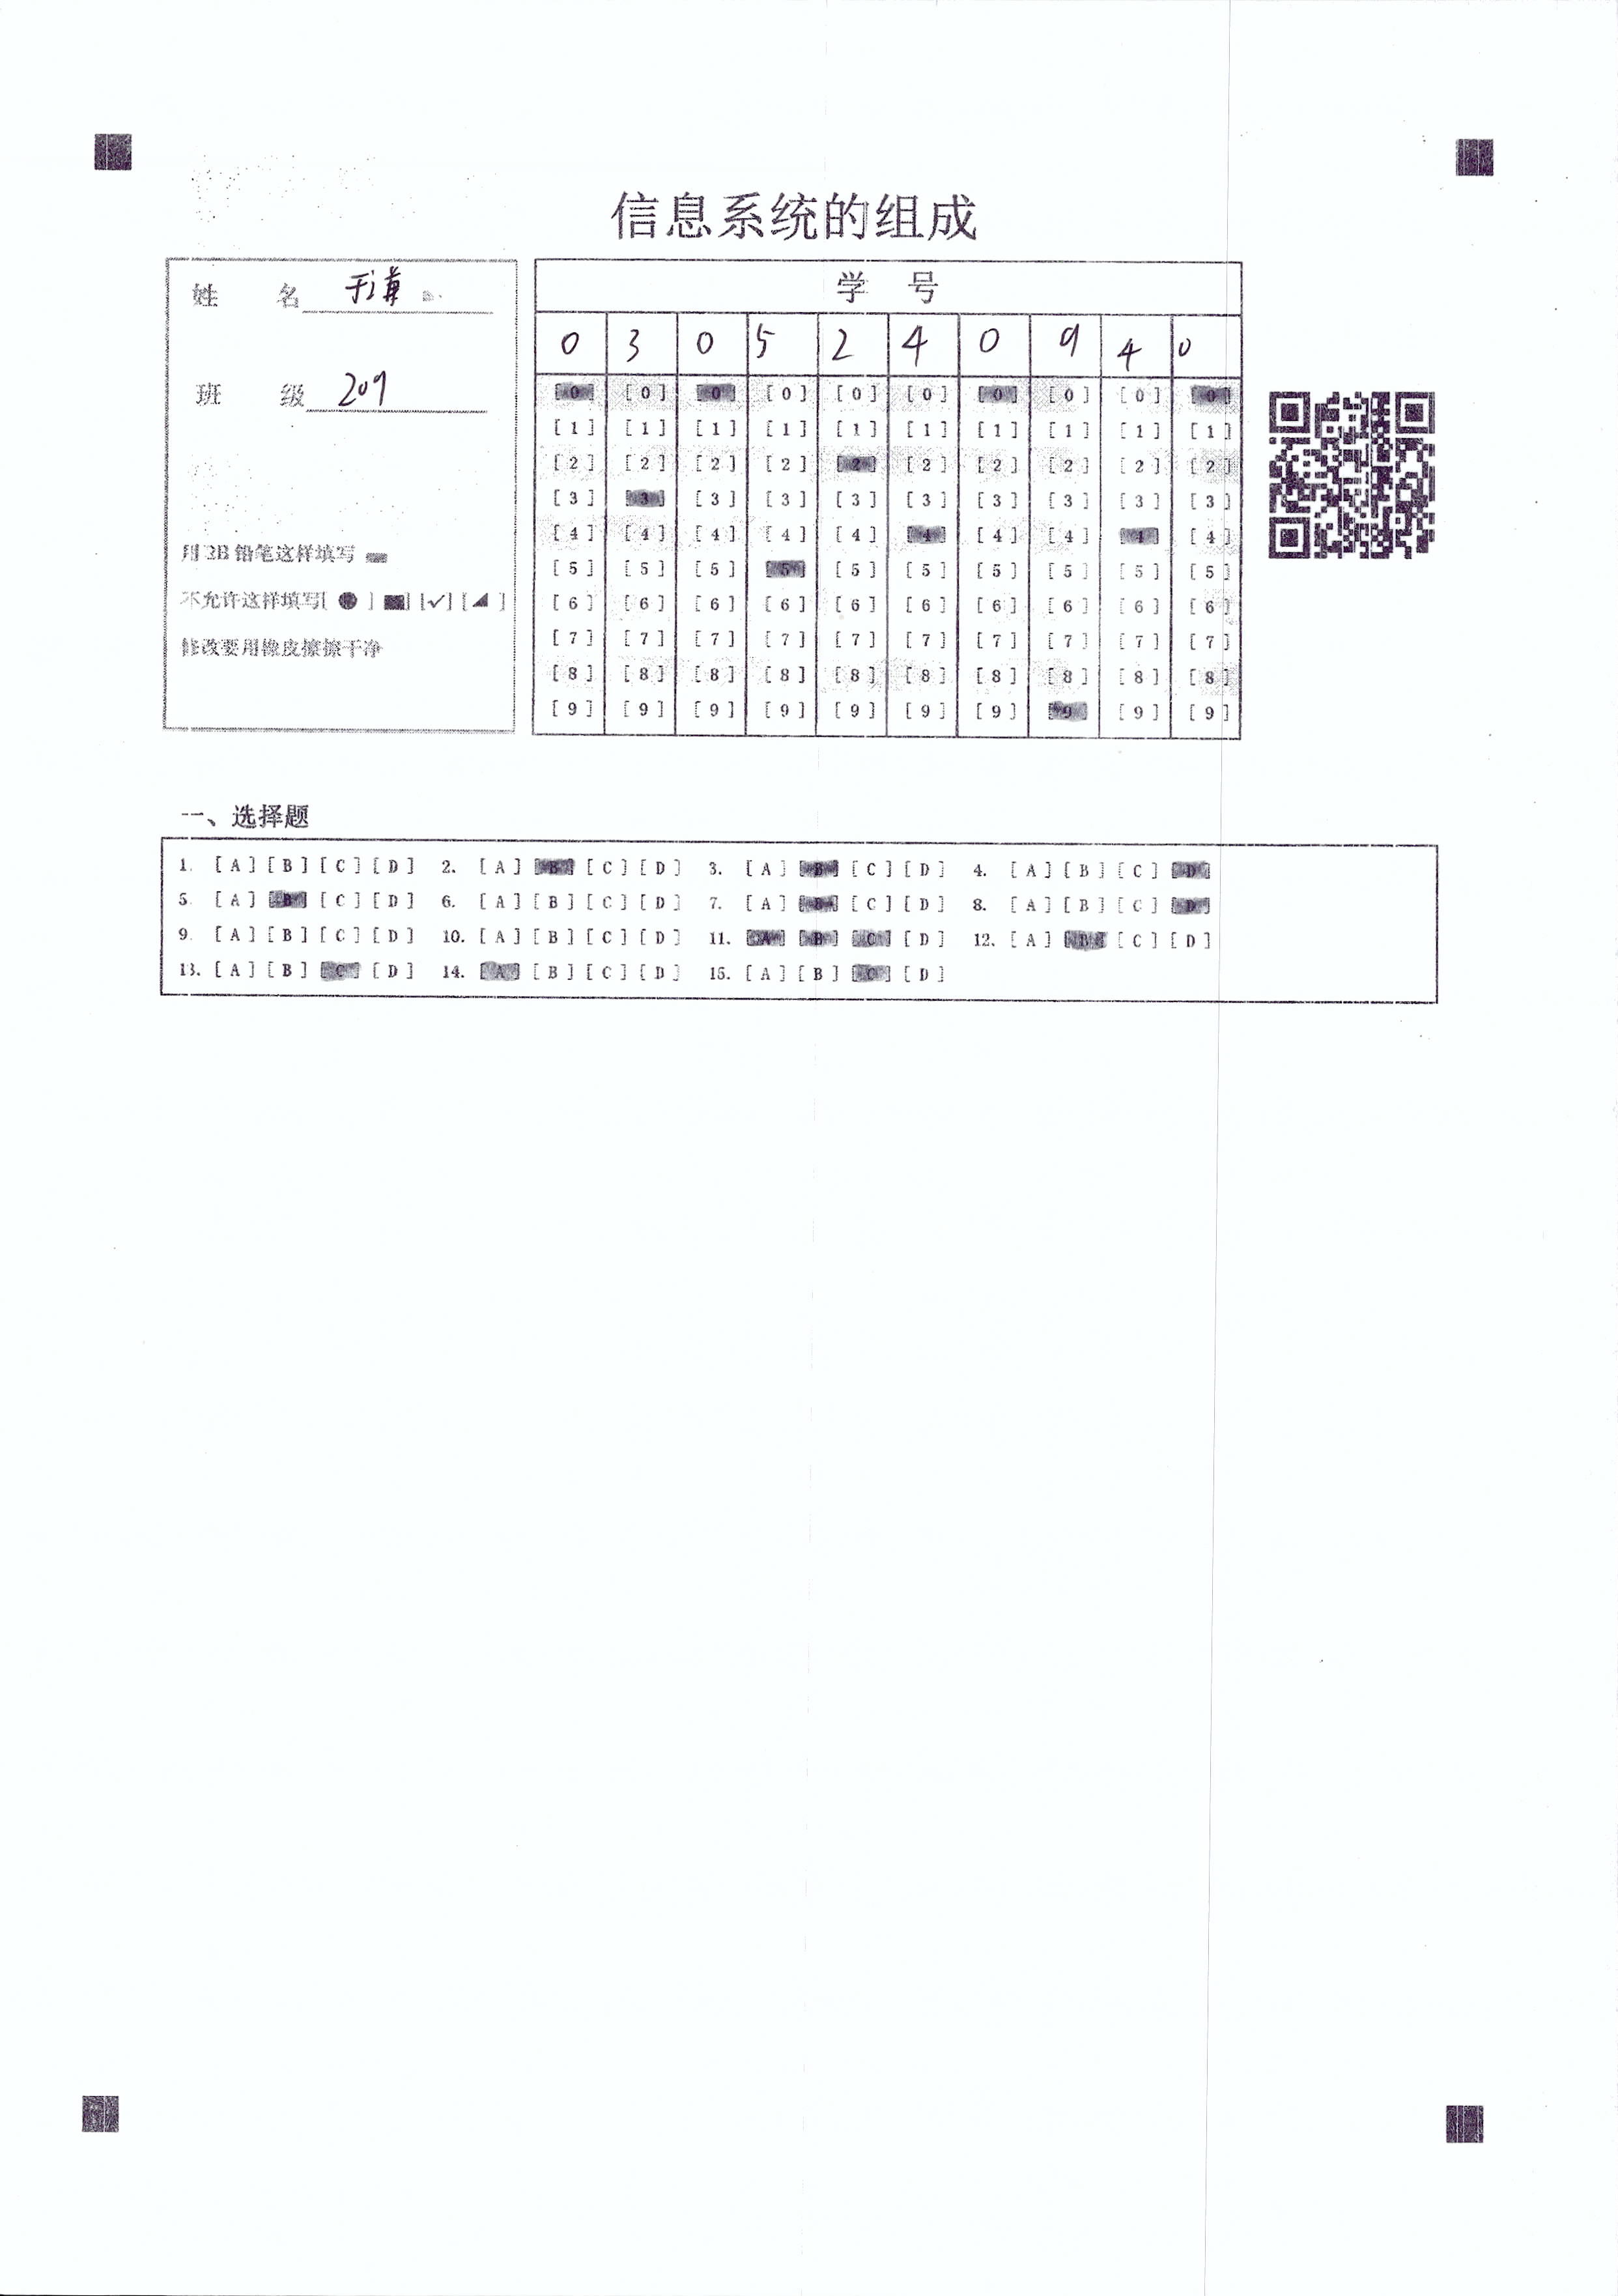 信息系统的组成
姓 名
班 级 209
用2B铅笔这样填写
不允许这样填写[ ● ] [■] [✓] [◢ ]
修改要用橡皮擦擦干净
学 号
0 3 0 5 2 4 0 9 4 0
[0] [0] [0] [0] [0] [0] [0] [0] [0] [0]
[1] [1] [1] [1] [1] [1] [1] [1] [1] [1]
[2] [2] [2] [2] [2] [2] [2] [2] [2] [2]
[3] [3] [3] [3] [3] [3] [3] [3] [3] [3]
[4] [4] [4] [4] [4] [4] [4] [4] [4] [4]
[5] [5] [5] [5] [5] [5] [5] [5] [5] [5]
[6] [6] [6] [6] [6] [6] [6] [6] [6] [6]
[7] [7] [7] [7] [7] [7] [7] [7] [7] [7]
[8] [8] [8] [8] [8] [8] [8] [8] [8] [8]
[9] [9] [9] [9] [9] [9] [9] [9] [9] [9]
一、选择题
1. [A] [B] [C] [D] 2. [A] [B] [C] [D] 3. [A] [B] [C] [D] 4. [A] [B] [C] [D]
5. [A] [B] [C] [D] 6. [A] [B] [C] [D] 7. [A] [B] [C] [D] 8. [A] [B] [C] [D]
9. [A] [B] [C] [D] 10. [A] [B] [C] [D] 11. [A] [B] [C] [D] 12. [A] [B] [C] [D]
13. [A] [B] [C] [D] 14. [A] [B] [C] [D] 15. [A] [B] [C] [D]